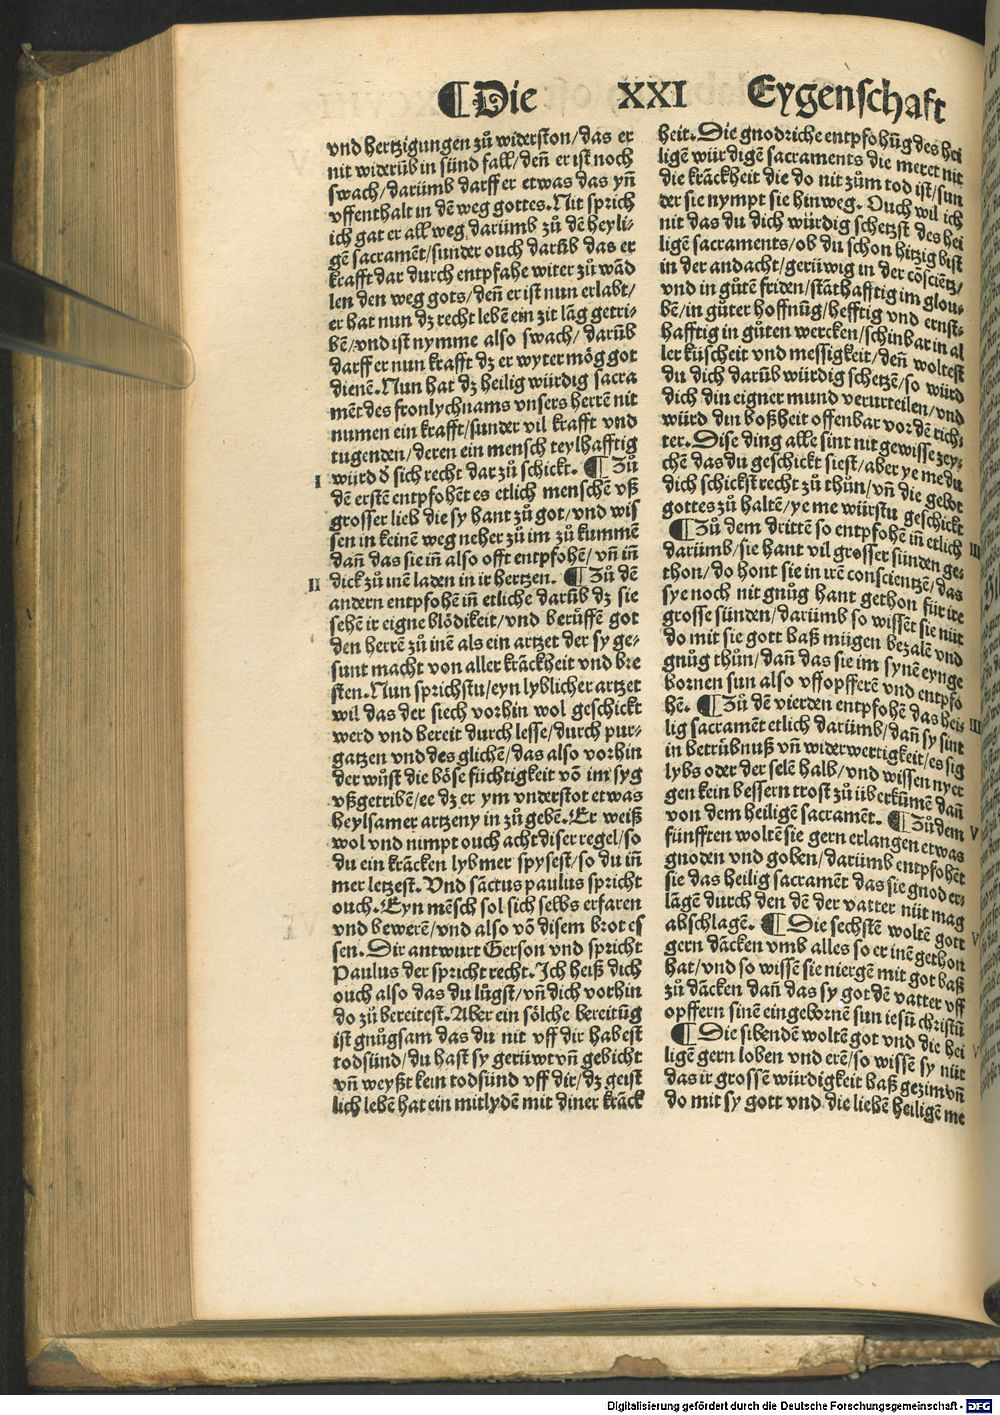 ¶Die XXI Eygenschafft
vnd hertzigungen zů widerston/das er
nit widerũb in sünd fall/deñ er ist noch
swach/darũmb darff er etwas das yñ
vffenthalt in dẽ weg gottes. Nit sprich
ich gat er all weg darũmb zů dẽ heyli⸗
gẽ sacramẽt/sunder ouch darũb das er
krafft dar durch entpfahe witer zů wãd
len den weg gots/deñ er ist nun erlabt/
er hat nun dz recht lebẽ ein zit lãg getri⸗
bẽ/vnd ist nymme also swach/darũb
darff er nun krafft dz er wyter mög got
dienẽ. Nun hat dz heilig würdig sacra
mẽt des fronlychnams vnsers herrẽ nit
numen ein krafft/sunder vil krafft vnd
tugenden/deren ein mensch teylhafftig
würd d̕ sich recht dar zů schickt. ¶ Zů
I
dẽ erstẽ entpfohẽt es etlich menschẽ vß
grosser lieb die sy hant zů got/vnd wis
sen in keinẽ weg neher zů im zů kummẽ
dañ das sie iñ also offt entpfohẽ/vñ iñ
dick zů inẽ laden in ir hertzen. ¶ Zů dẽ
II
andern entpfohẽ iñ etliche darũb dz sie
sehẽ ir eigne blödikeit/vnd berüffẽ got
den herrẽ zů inẽ als ein artzet der sy ge⸗
sunt macht von aller krãckheit vnd bre
sten. Nun sprichstu/eyn lyblicher artzet
wil das der siech vorhin wol geschickt
werd vnd bereit durch lesse/durch pur⸗
gatzen vnd des glichẽ/das also vorhin
der wůst die böse füchtigkeit võ im syg
vßgetribẽ/ee dz er ym vnderstot etwas
heylsamer artzeny in zů gebẽ. Er weiß
wol vnd nimpt ouch acht diser regel/so
du ein krãcken lyb mer spysest/so du iñ
mer letzest. Vnd sãctus paulus spricht
ouch. Eyn mẽsch sol sich selbs erfaren
vnd bewerẽ/vnd also võ disem brot es
sen. Dir antwurt Gerson vnd spricht
Paulus der spricht recht. Ich heiß dich
ouch also das du lůgst/vñ dich vorhin
do zů bereitest. Aber ein sölche bereitũg
ist gnůgsam das du nit vff dir habest
todsünd/du hast sy gerüwt vñ gebicht
vñ weyßt kein todsünd vff dir/dz geist
lich lebẽ hat ein mitlydẽ mit diner krãck
heit. Die gnodriche entpfohũg des hei
ligẽ würdigẽ sacraments die meret nit
die krãckheit die do nit zům tod ist/sun
der sie nympt sie hinweg. Ouch wil ich
nit das du dich würdig schetzst des hei
ligẽ sacraments/ob du schon hitzig bist
in der andacht/gerüwig in der cõsciẽtz/
vnd in gůtẽ friden/stãthafftig im glou⸗
bẽ/in gůter hoffnũg/hefftig vnd ernst⸗
hafftig in gůten wercken/schinbar in al
ler küscheit vnd messigkeit/deñ woltest
du dich darũb würdig schetzẽ/so würd
dich din eigner mund verurteilen/vnd
würd din boßheit offenbar vor dẽ rich⸗
ter. Dise ding alle sint nit gewisse zey⸗
chẽ das du geschickt siest/aber ye me du
dich schickst recht zů thůn/vñ die gebot
gottes zů haltẽ/ye me würstu geschickt
¶Zů dem drittẽ so entpfohẽ iñ etlich
III
darũmb/sie hant vil grosser sünden ge⸗
thon/do hont sie in irẽ conscientzẽ/das
sye noch nit gnůg hant gethon für ire
grosse sünden/darũmb so wissẽt sie nüt
do mit sie gott baß mügen bezalẽ vnd
gnůg thůn/dañ das sie im synẽ eynge
bornen sun also vffopfferẽ vnd entpfo
hẽ. ¶ Zů dẽ vierden entpfohẽ das hei⸗
IIII
lig sacramẽt etlich darũmb/dañ sy sint
in betrübnuß vñ widerwertigkeit/es sig
lybs oder der selẽ halb/vnd wissen nyer
gen kein bessern trost zů überkũmẽ dañ
von dem heiligẽ sacramẽt. ¶ Zů dem
V
fünfften woltẽ sie gern erlangen etwas
gnoden vnd goben/darũmb entpfohẽt
sie das heilig sacramẽt das sie gnod er⸗
lãgẽ durch den dẽ der vatter nüt mag
abschlagẽ. ¶ Die sechstẽ woltẽ gott
gern dãcken vmb alles so er inẽ gethon
hat/vnd so wissẽ sie niergẽ mit got baß
zů dãcken dañ das sy got dẽ vatter vff
opffern sinẽ eingebornẽ sun iesũ christũ
¶ Die sibendẽ woltẽ got vnd die hei
ligẽ gern loben vnd erẽ/so wissẽ sy nüt
das ir grossẽ würdigkeit baß gezim vñ
do mit sy gott vnd die liebẽ heiligẽ me
Digitalisierung gefördert durch die Deutsche Forschungsgemeinschaft - DFG